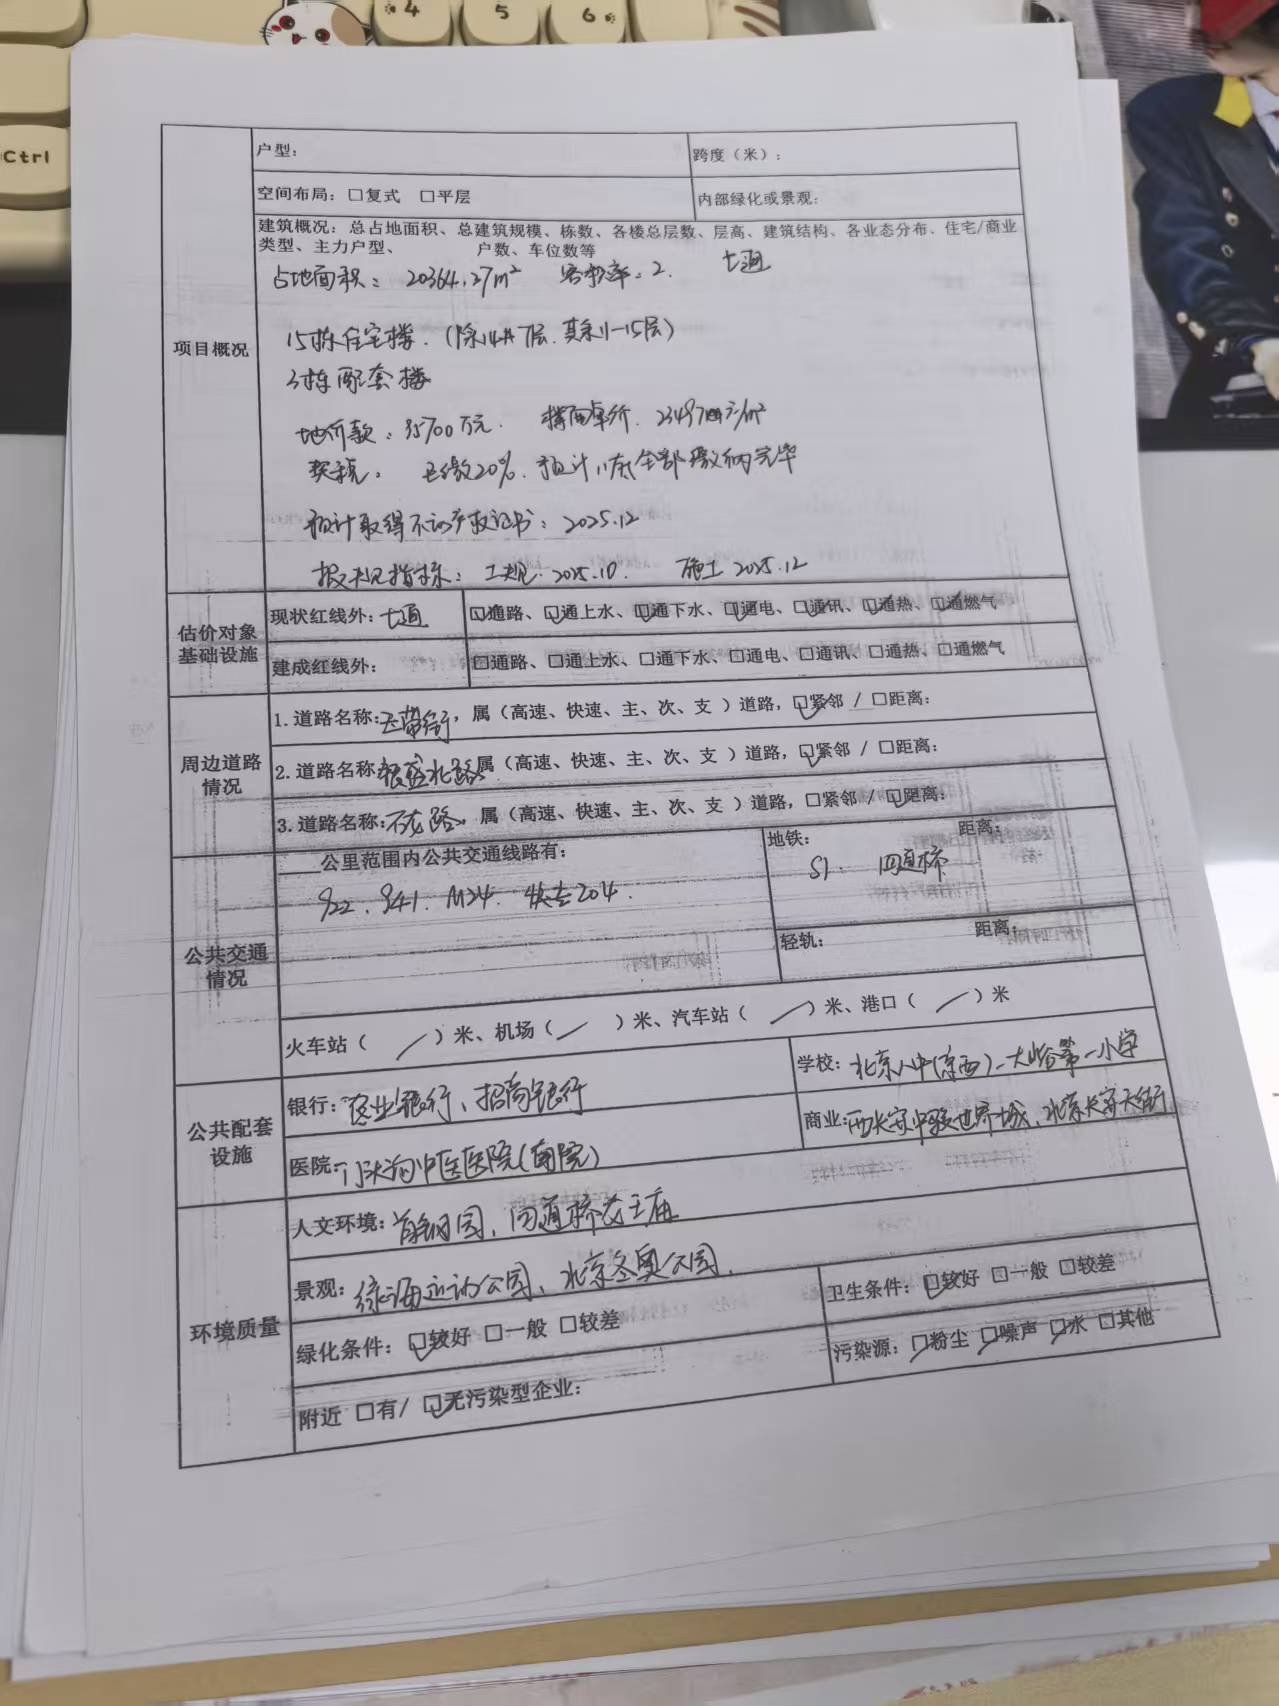 4 5 6
Ctrl
户型： 跨度（米）：
空间布局：□复式 □平层 内部绿化或景观：
建筑概况：总占地面积、总建筑规模、栋数、各楼总层数、层高、建筑结构、各业态分布、住宅/商业
类型、主力户型、 户数、车位数等
占地面积：20364.27m² 容积率：2. 七通
15栋住宅楼.（除14# 7层.其余11-15层）
项目概况
3栋配套楼
地价款：35700万元. 楼面单价. 23497元/m²
契税： 已缴20%. 预计11底全部缴纳完毕
预计取得不动产权证书：2025.12
报规指标：工规. 2025.10. 施工 2025.12
估价对象
基础设施
现状红线外：七通 ☑通路、☑通上水、☑通下水、☑通电、☑通讯、☑通热、☑通燃气
建成红线外： □通路、□通上水、□通下水、□通电、□通讯、□通热、□通燃气
周边道路
情况
1.道路名称：玉带街，属（高速、快速、主、次、支 ）道路，☑紧邻 / □距离：
2.道路名称：振兴北路，属（高速、快速、主、次、支 ）道路，☑紧邻 / □距离：
3.道路名称：石龙路，属（高速、快速、主、次、支 ）道路，□紧邻 / ☑距离：
公共交通
情况
____公里范围内公共交通线路有： 地铁： 距离：
922、941、M24、快专204. S1. 四道桥
轻轨： 距离：
火车站（ / ）米、机场（ / ）米、汽车站（ / ）米、港口（ / ）米
公共配套
设施
银行：农业银行、招商银行 学校：北京八中(京西)、大峪第一小学
医院：门头沟中医医院(南院) 商业：西长安中骏世界城、北京长安天街
环境质量
人文环境：首钢园、四道桥龙王庙
景观：绿海运动公园、北京冬奥公园. 卫生条件：☑较好 □一般 □较差
绿化条件：☑较好 □一般 □较差 污染源：☑粉尘 ☑噪声 ☑水 □其他
附近 □有/ ☑无污染型企业：